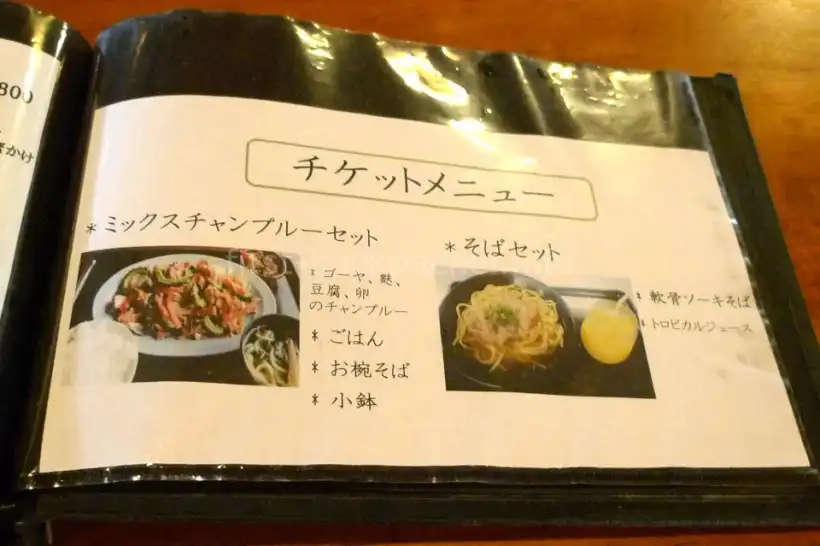 800
かけ
チケットメニュー
*ミックスチャンプルーセット
* ゴーヤ、麩、
豆腐、卵
のチャンプルー
* ごはん
* お椀そば
* 小鉢
*そばセット
* 軟骨ソーキそば
* トロピカルジュース